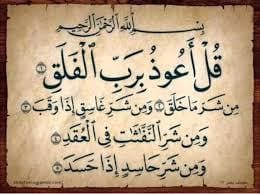 بِسْمِ اللَّهِ الرَّحْمَٰنِ الرَّحِيمِ
قُلْ أَعُوذُ بِرَبِّ الْفَلَقِ ﴿١﴾
مِن شَرِّ مَا خَلَقَ ﴿٢﴾ وَمِن شَرِّ غَاسِقٍ إِذَا وَقَبَ ﴿٣﴾
وَمِن شَرِّ النَّفَّٰثَٰتِ فِي الْعُقَدِ ﴿٤﴾
وَمِن شَرِّ حَاسِدٍ إِذَا حَسَدَ ﴿٥﴾